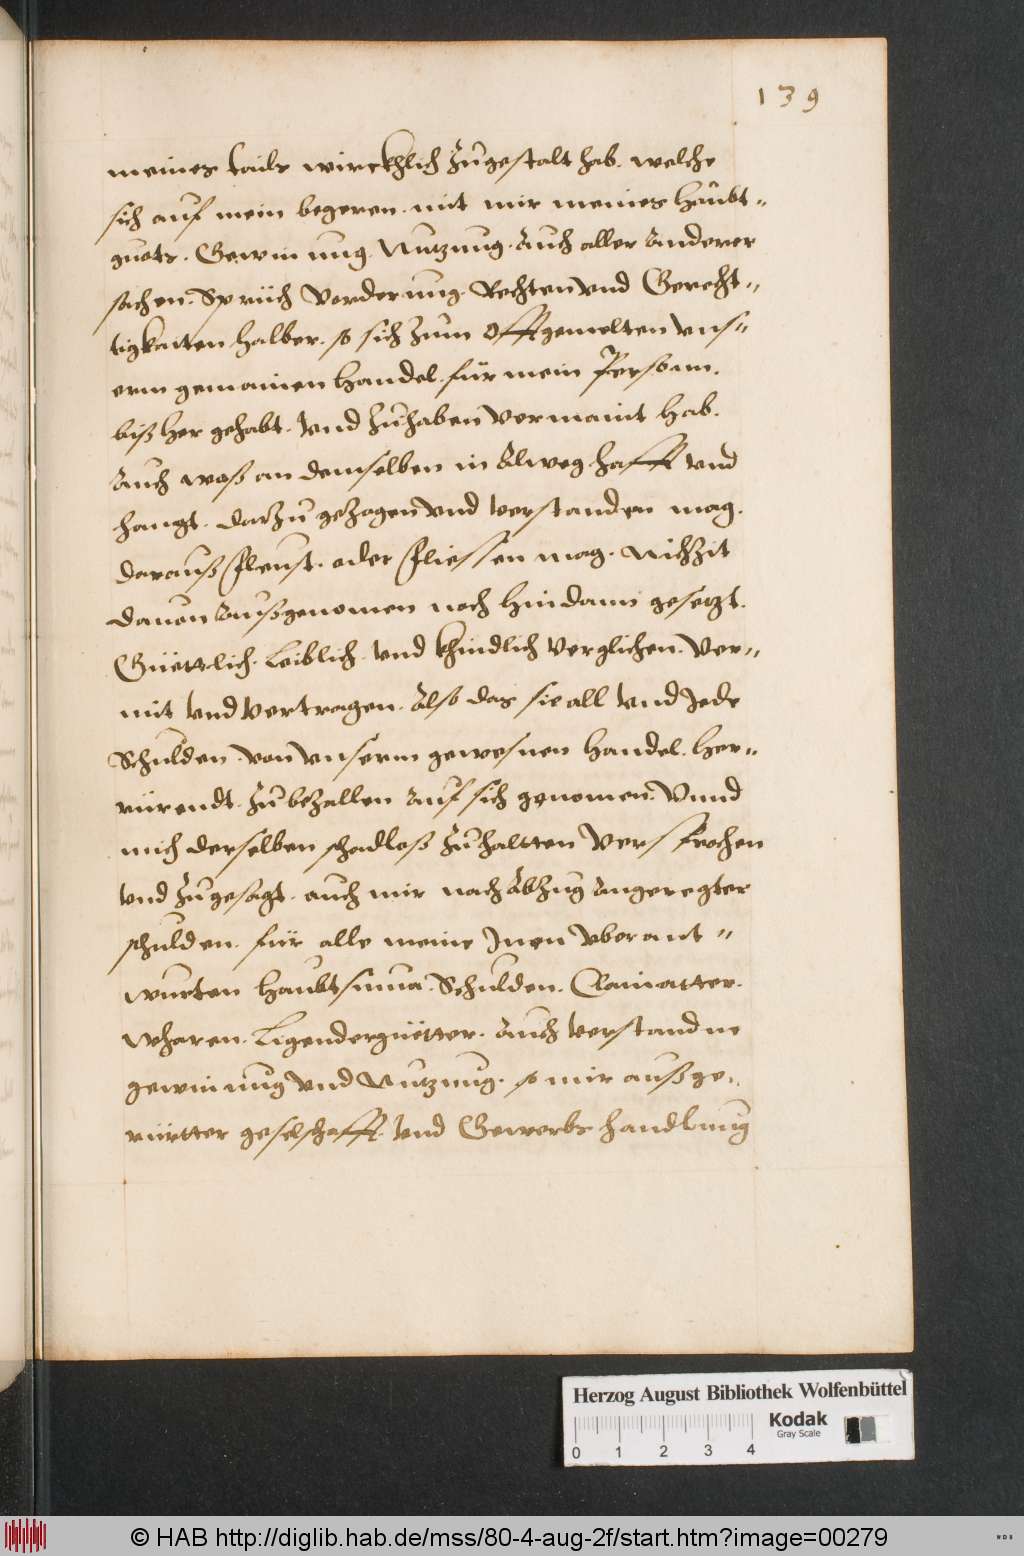 139
meines tails wircklich Zugestalt hab. welche
sich auf mein begeren. mit mir meines haubt-
guets. Gewinnung. Nutzung. Auch aller Anderer
sachen. Sprüch Vorderung. Rechten vnd Gerecht-
tigkaiten halber. so sich zum Offtgemelten vns-
erm gemainen Handel. für mein Personn.
biß her gehabt. Vnd zuhaben Vermaint hab.
Auch waß an demselben in Alweg hafft vnd
hangt. darzu gezogen vnd verstanden mag.
darauß fleust. oder fliessen mag. nichzit
dauon Außgenomen noch hindann gesetzt.
Güettlich. Leiblich. vnd khindlich Verglichen. Ver-
nit vnd Vertragen. Also das sie all vnd Jede
Schulden. von vnserm gewesnen Handel. her-
rürendt. Zubezallen Auf sich genomen. Vnnd
mich derselben schadloß zuhaltten Versprochen
vnd zugesagt. auch mir nach Abzug Angeregter
schulden. für alle meine Inen vberant-
wurten haubtsuma. Schulden. Clainatter.
Wharen. Ligendergüetter. Auch verstandne
gewinnung vnd Nutzung. so mir außge-
rürtter geselschafft. vnd Gewerbs handlung
Herzog August Bibliothek Wolfenbüttel
Kodak
Gray Scale
0 1 2 3 4
© HAB http://diglib.hab.de/mss/80-4-aug-2f/start.htm?image=00279